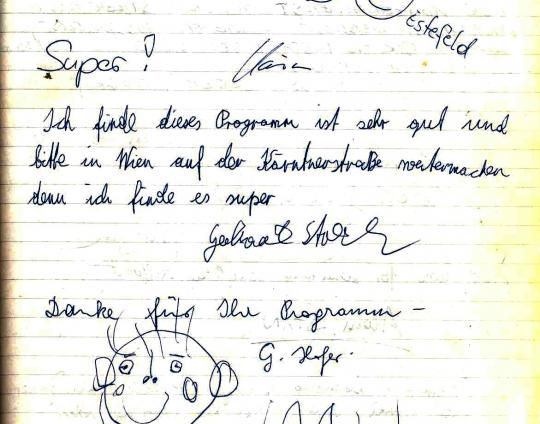 Estefeld
Super!
Ich finde dieses Programm ist sehr gut und
bitte in Wien auf der Kärntnerstraße weitermachen
denn ich finde es super
Danke für Ihr Programm –
G. Hofer.